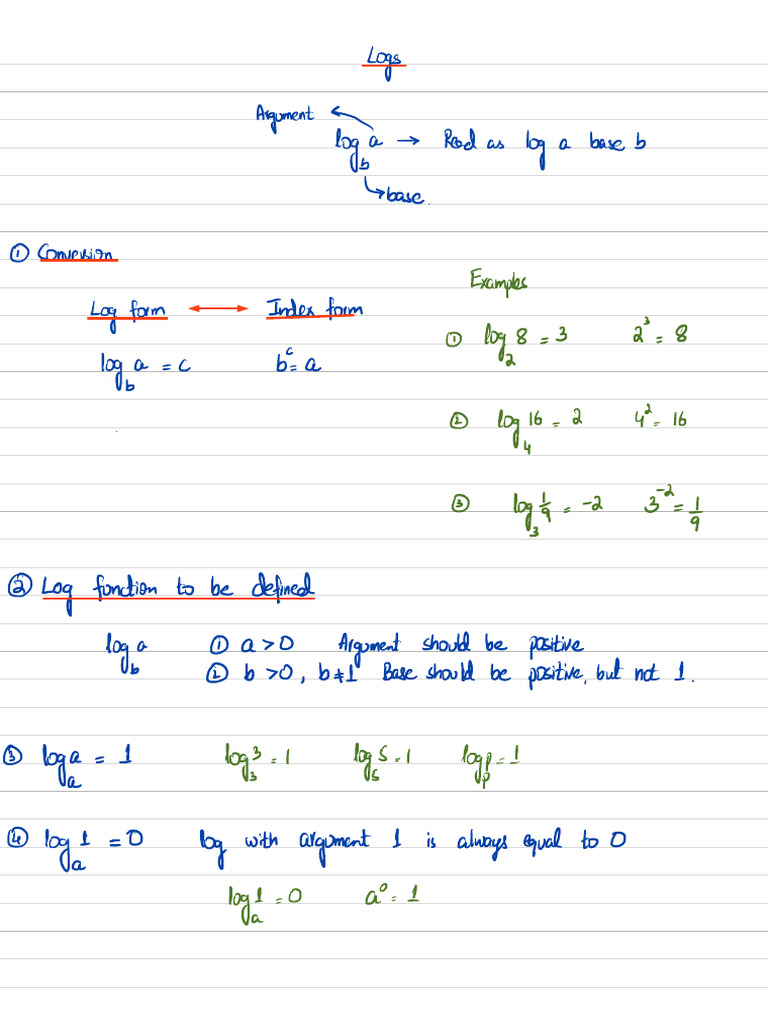 Logs
Argument
log_b a → Read as log a base b
base.
① Conversion
Examples
Log form ↔ Index form
① log_2 8 = 3 2^3 = 8
log_b a = c b^c = a
② log_4 16 = 2 4^2 = 16
③ log_3 1/9 = -2 3^-2 = 1/9
② Log function to be defined
log_b a ① a > 0 Argument should be positive
② b > 0, b ≠ 1 Base should be positive, but not 1.
③ log_a a = 1 log_3 3 = 1 log_5 5 = 1 log_p p = 1
④ log_a 1 = 0 log with argument 1 is always equal to 0
log_a 1 = 0 a^0 = 1